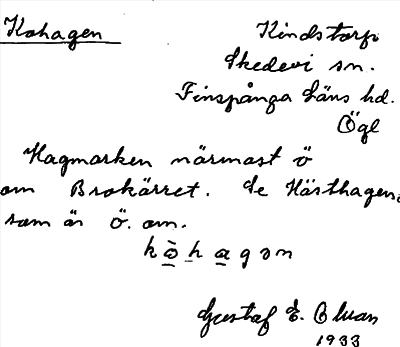 Kohagen
Kindstorp
Skedevi sn.
Finspånga Läns hd.
Ögl
Hagmarken närmast ö
om Brokärret. Se Hästhagen,
som är ö. om.
kò̱ẖa̱gən
Gustaf E. Bluan
1933